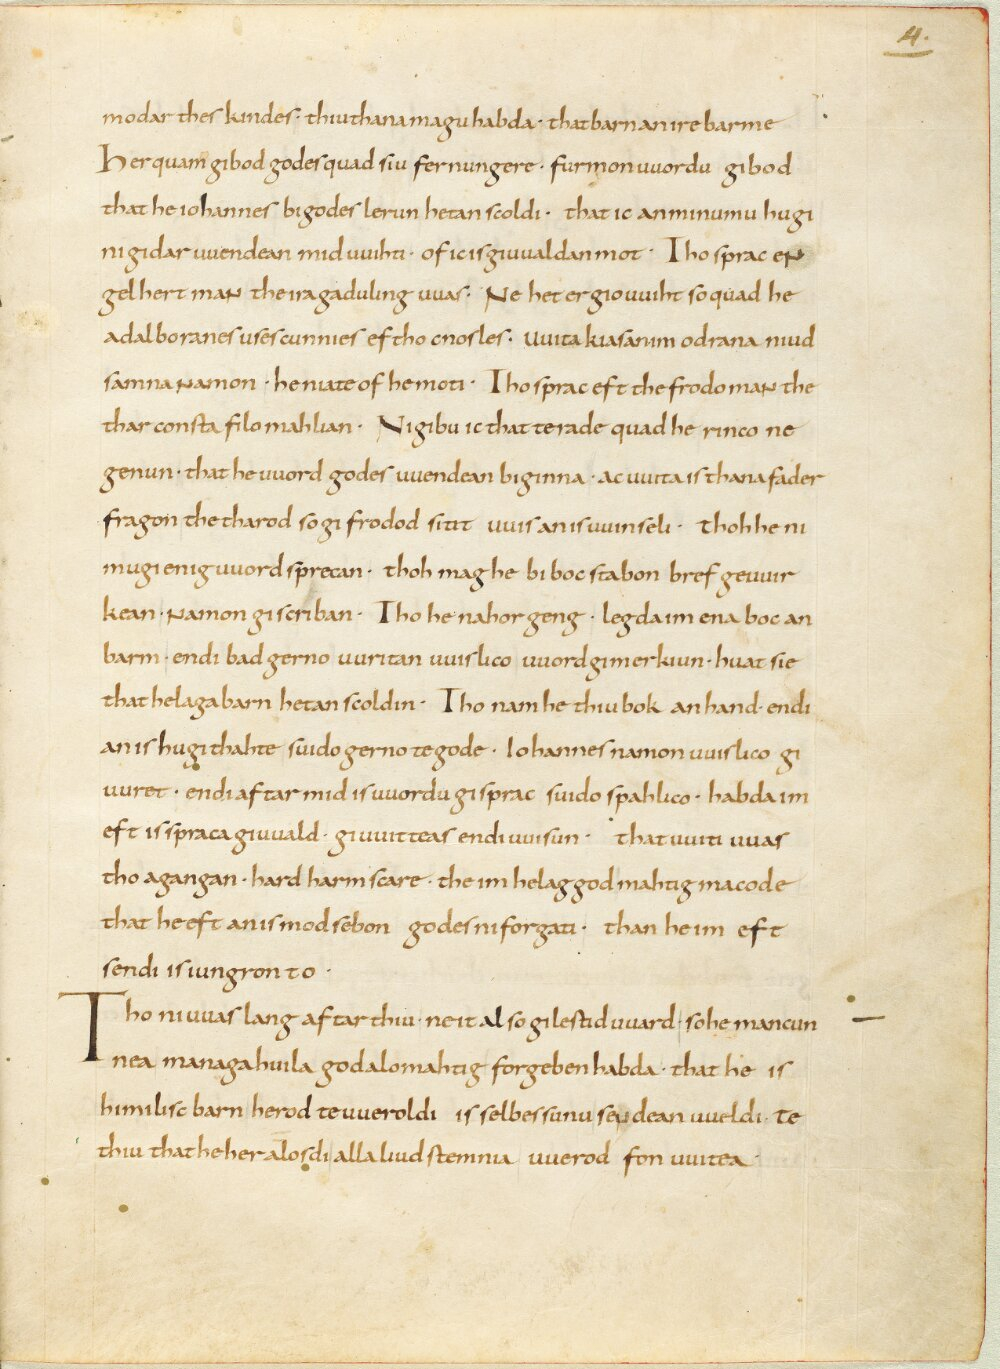 4.
modar thes kindes· thiu thana magu habda· that barn an ire barme
Her quam gibod godes quad siu fernun gere· furmon uuordu gibod
that he iohannes bi godes lerun hetan scoldi· that ic an minumu hugi
ni gidar uuendean mid uuihti· of ic is giuualdan mot· Tho sprac en
gelhert man the ira gaduling uuas· Ne het er giouuiht so quad he
adalboranes uses cunnies eftho cnosles· uuita kiasan im odrana niud
samna namon· he niate of he moti· Tho sprac eft the frodo man the
thar consta filo mahlian· Ni gibu ic that te rade quad he rinco ne
genun· that he uuord godes uuendean biginna· ac uuita is thana fader
fragon the tharod so gifrodod sitit uuis an is uuinseli· thoh he ni
mugi enig uuord sprecan· thoh mag he bi bocstabon bref geuuir
kean· namon giscriban· Tho he nahor geng· legda im ena boc an
barm· endi bad gerno uuritan uuislico uuordgimerkiun· huat sie
that helaga barn hetan scoldin· Tho nam he thiu bok an hand· endi
an is hugi thahte suido gerno te gode· Iohannes namon uuislico gi
uuret· endi aftar mid is uuordu gisprac suido spahlico· habda im
eft is spraca giuuald· giuuitteas endi uuisun· that uuiti uuas
tho agangan· hard harmscare· the im helag god mahtig macode
that he eft an is modsebon godes ni forgati· than he im eft
sendi is iungron to·
Tho ni uuas lang aftar thiu· ne it al so gilestid uuard· so he mancun
nea managa huila god alomahtig forgeben habda· that he is
himilisc barn herod te uueroldi is selbes sunu sendean uueldi· te
thiu that he her alosdi alla liudstemnia uuerod fon uuitea·